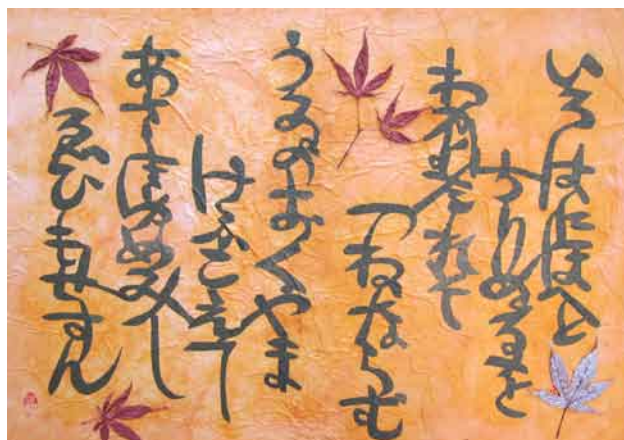 いろはにほへと
ちりぬるを
わかよたれそ
つねならむ
うゐのおくやま
けふこえて
あさきゆめみし
ゑひもせすん